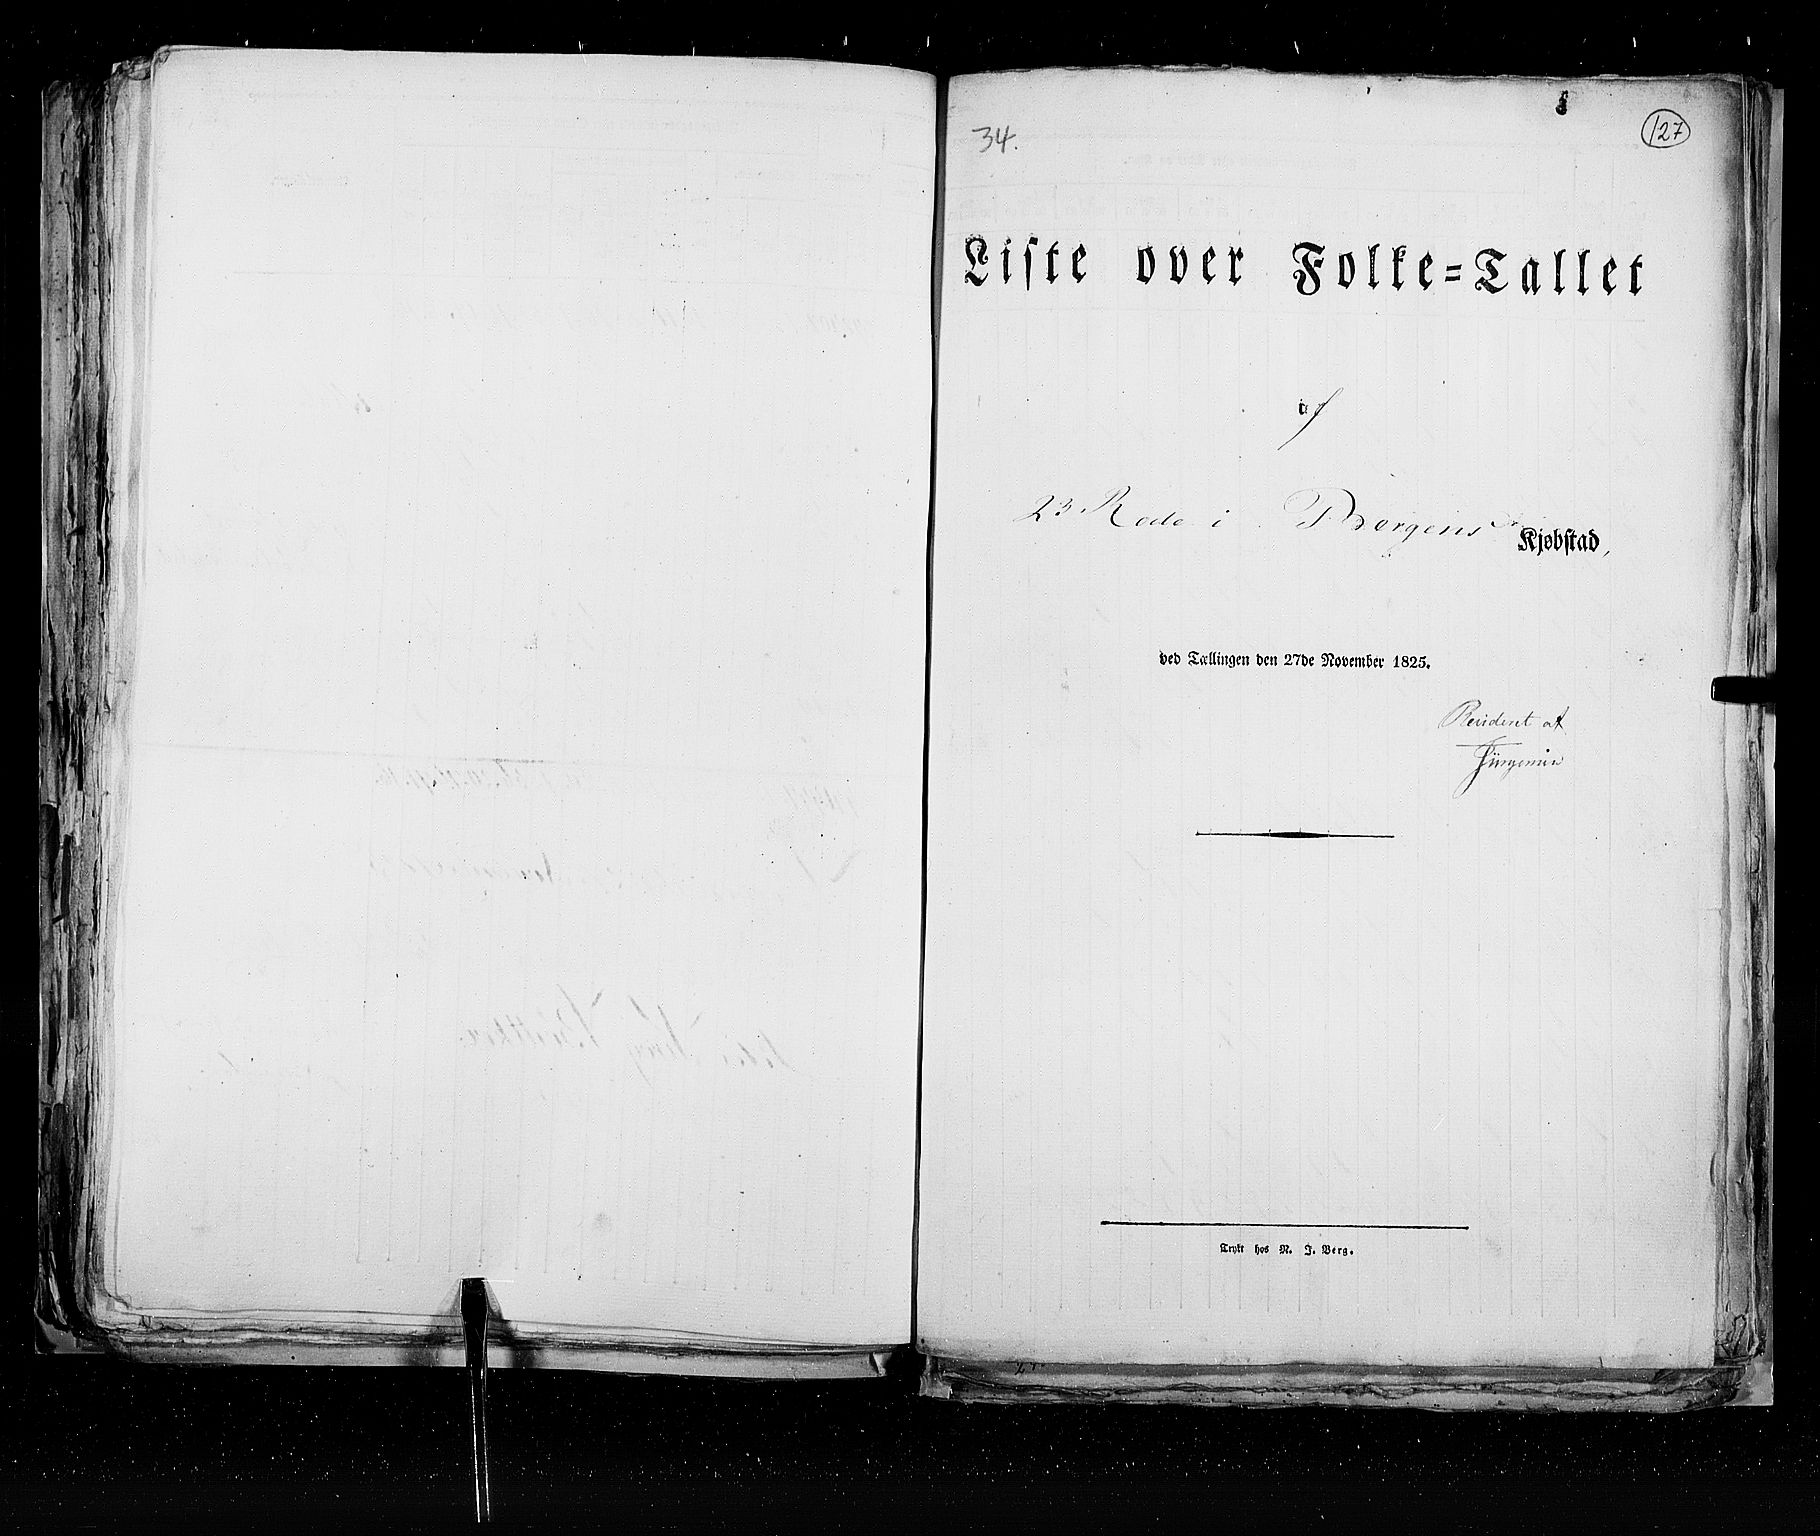 127
34.
Liste over Folke=Tallet
af
23 Rode i Bergens Kjøbstad,
ved Tællingen den 27de November 1825.
Revideret af
Trykt hos N. J. Berg.